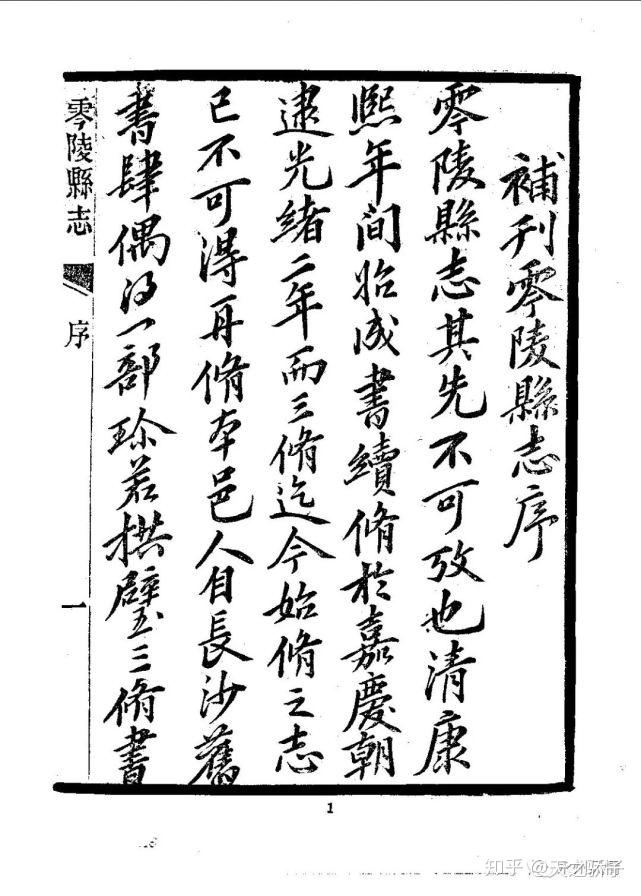 補刊零陵縣志序
零陵縣志其先不可攷也清康
熙年間始成書續脩於嘉慶朝
逮光緒二年而三脩迄今始脩之志
已不可得再脩本邑人自長沙舊
書肆偶得一部珍若拱璧三脩書
零陵縣志
序
一
1
知乎